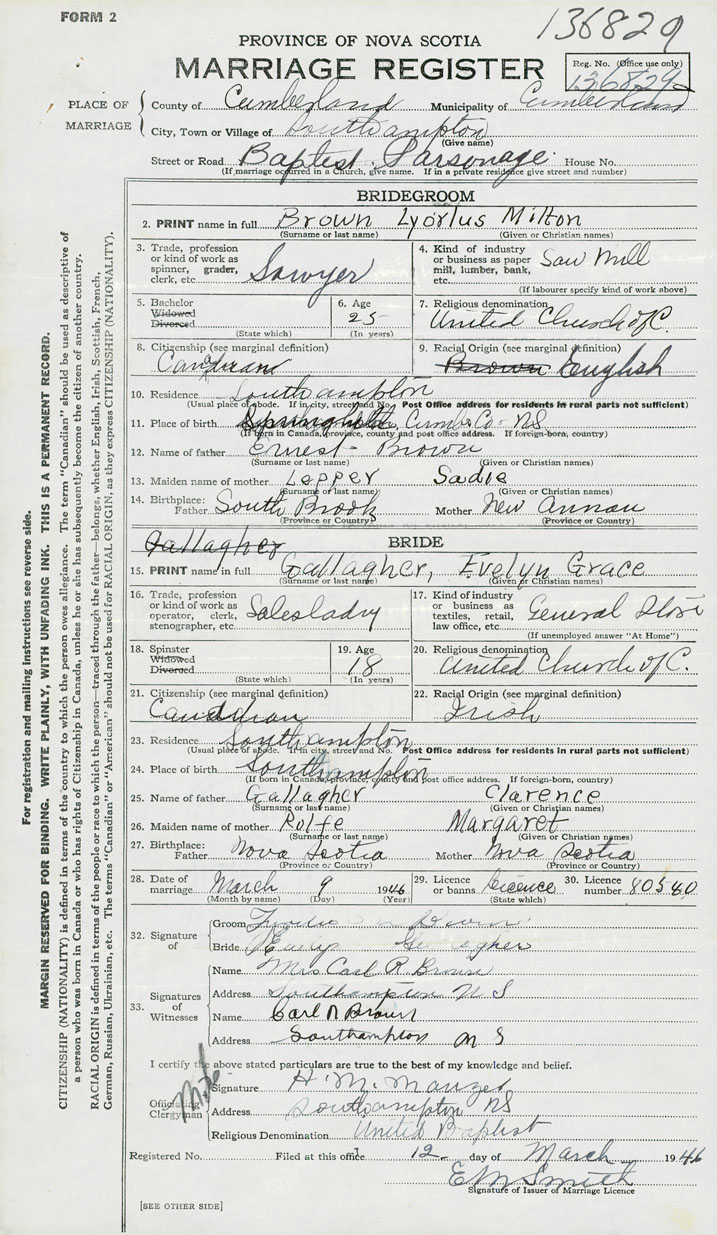 FORM 2
136829
PROVINCE OF NOVA SCOTIA
MARRIAGE REGISTER
Reg. No. (Office use only)
136829
PLACE OF MARRIAGE
County of Cumberland Municipality of Cumberland
City, Town or Village of Southampton
(Give name)
Street or Road Baptist Parsonage House No.
(If marriage occurred in a Church, give name. If in a private residence give street and number)
BRIDEGROOM
2. PRINT name in full Brown Lyorlus Milton
(Surname or last name) (Given or Christian names)
3. Trade, profession or kind of work as spinner, grader, clerk, etc. Sawyer
4. Kind of industry or business as paper mill, lumber, bank, etc. Saw Mill
(If labourer specify kind of work above)
5. Bachelor Widowed Divorced (State which)
6. Age 25 (In years)
7. Religious denomination United Church of C.
8. Citizenship (see marginal definition) Canadian
9. Racial Origin (see marginal definition) Brown English
10. Residence Southampton
(Usual place of abode. If in city, street and No. Post Office address for residents in rural parts not sufficient)
11. Place of birth Cumb. Co. NS
(If born in Canada, province, county and post office address. If foreign-born, country)
12. Name of father Ernest Brown
(Surname or last name) (Given or Christian names)
13. Maiden name of mother Lepper Sadie
(Surname or last name) (Given or Christian names)
14. Birthplace: Father South Brook Mother New Annan
(Province or Country) (Province or Country)
Gallagher
BRIDE
15. PRINT name in full Gallagher, Evelyn Grace
(Surname or last name) (Given or Christian names)
16. Trade, profession or kind of work as operator, clerk, stenographer, etc. Saleslady
17. Kind of industry or business as textiles, retail, law office, etc. General Store
(If unemployed answer "At Home")
18. Spinster Widowed Divorced (State which)
19. Age 18 (In years)
20. Religious denomination United Church of C.
21. Citizenship (see marginal definition) Canadian
22. Racial Origin (see marginal definition) Irish
23. Residence Southampton
(Usual place of abode. If in city, street and No. Post Office address for residents in rural parts not sufficient)
24. Place of birth Southampton
(If born in Canada, province, county and post office address. If foreign-born, country)
25. Name of father Gallagher Clarence
(Surname or last name) (Given or Christian names)
26. Maiden name of mother Rolfe Margaret
(Surname or last name) (Given or Christian names)
27. Birthplace: Father Nova Scotia Mother Nova Scotia
(Province or Country) (Province or Country)
28. Date of marriage March 9 1946
(Month by name) (Day) (Year)
29. Licence or banns Licence (State which)
30. Licence number 80540
32. Signature of
Groom Brown
Bride Gallagher
33. Signatures of Witnesses
Name Mrs Carl R. Brown
Address Southampton N S
Name Carl R Brown
Address Southampton N S
I certify the above stated particulars are true to the best of my knowledge and belief.
Officiating Clergyman
Signature H. M. Manzer
Address Southampton NS
Religious Denomination United Baptist
Registered No. Filed at this office 12 day of March 1946
E M Smith
Signature of Issuer of Marriage Licence
[SEE OTHER SIDE]
For registration and mailing instructions see reverse side.
MARGIN RESERVED FOR BINDING. WRITE PLAINLY, WITH UNFADING INK. THIS IS A PERMANENT RECORD.
CITIZENSHIP (NATIONALITY) is defined in terms of the country to which the person owes allegiance. The term "Canadian" should be used as descriptive of
a person who was born in Canada or who has rights of Citizenship in Canada, unless he or she has subsequently become the citizen of another country.
RACIAL ORIGIN is defined in terms of the people or race to which the person—traced through the father—belongs, whether English, Irish, Scottish, French,
German, Russian, Ukrainian, etc. The terms "Canadian" or "American" should not be used for RACIAL ORIGIN, as they express CITIZENSHIP (NATIONALITY).